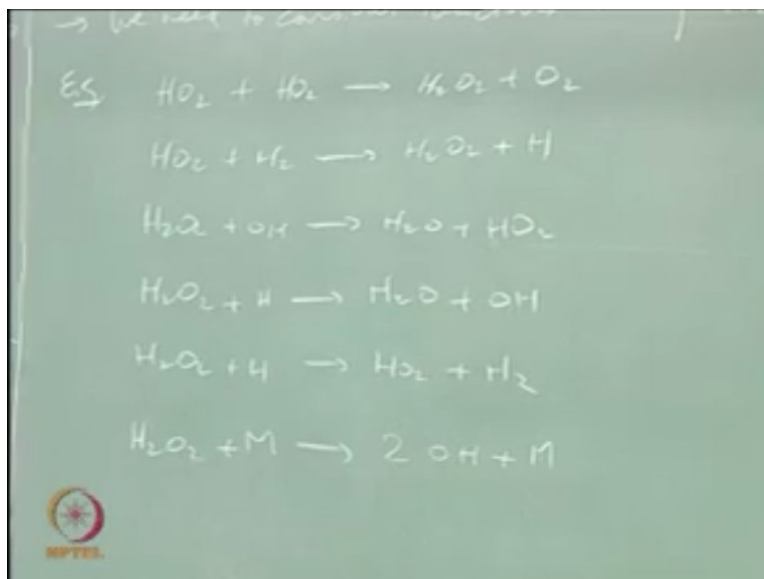 → we need to consider reactions
E.g. HO₂ + HO₂ → H₂O₂ + O₂
HO₂ + H₂ → H₂O₂ + H
H₂O₂ + OH → H₂O + HO₂
H₂O₂ + H → H₂O + OH
H₂O₂ + H → HO₂ + H₂
H₂O₂ + M → 2 OH + M
NPTEL